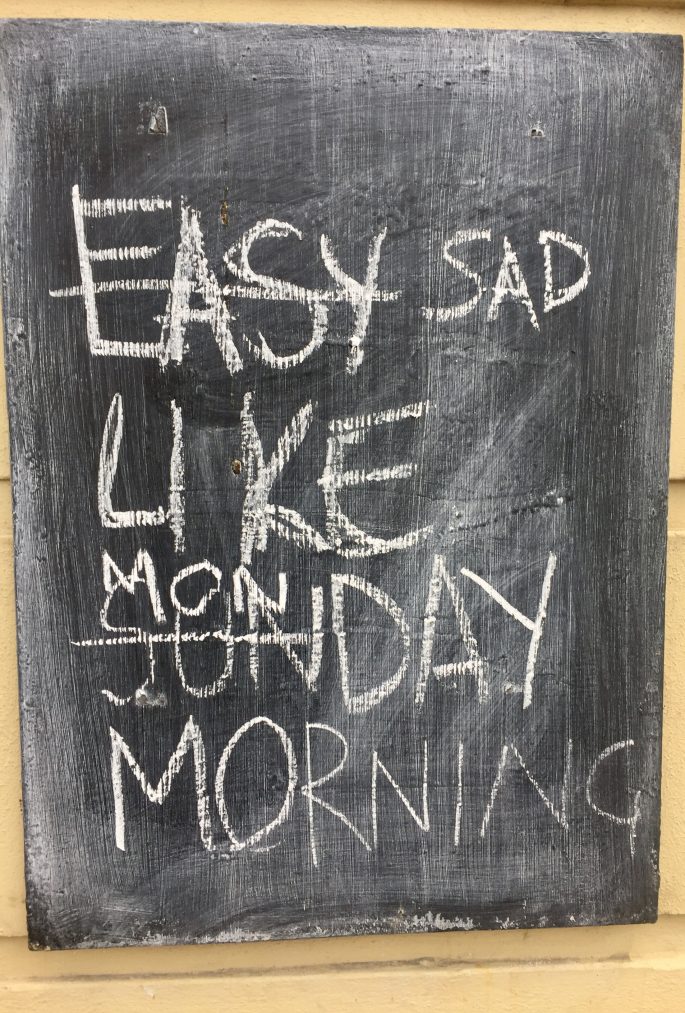 EASY SAD
LIKE
MON
SUNDAY
MORNING